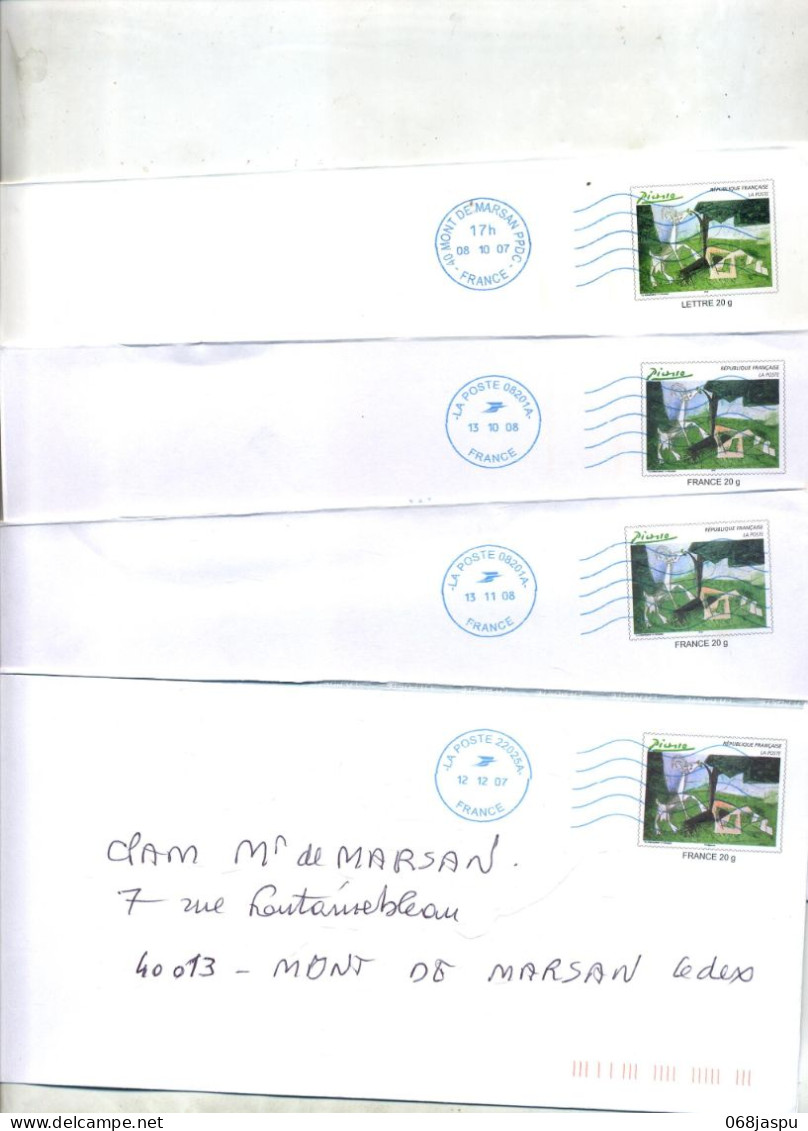 Picasso
RÉPUBLIQUE FRANÇAISE
LA POSTE
40 MONT DE MARSAN PPDC
17h
08 10 07
- FRANCE -
LETTRE 20 g
Picasso
RÉPUBLIQUE FRANÇAISE
LA POSTE
-LA POSTE 08201A-
13 10 08
FRANCE
FRANCE 20 g
Picasso
RÉPUBLIQUE FRANÇAISE
LA POSTE
-LA POSTE 08201A-
13 11 08
FRANCE
FRANCE 20 g
Picasso
RÉPUBLIQUE FRANÇAISE
LA POSTE
-LA POSTE 22025A-
12 12 07
FRANCE
FRANCE 20 g
CPAM Mt de MARSAN.
7 rue Fontainebleau
40013 - MONT DE MARSAN Cedex
delcampe.net
068jaspu